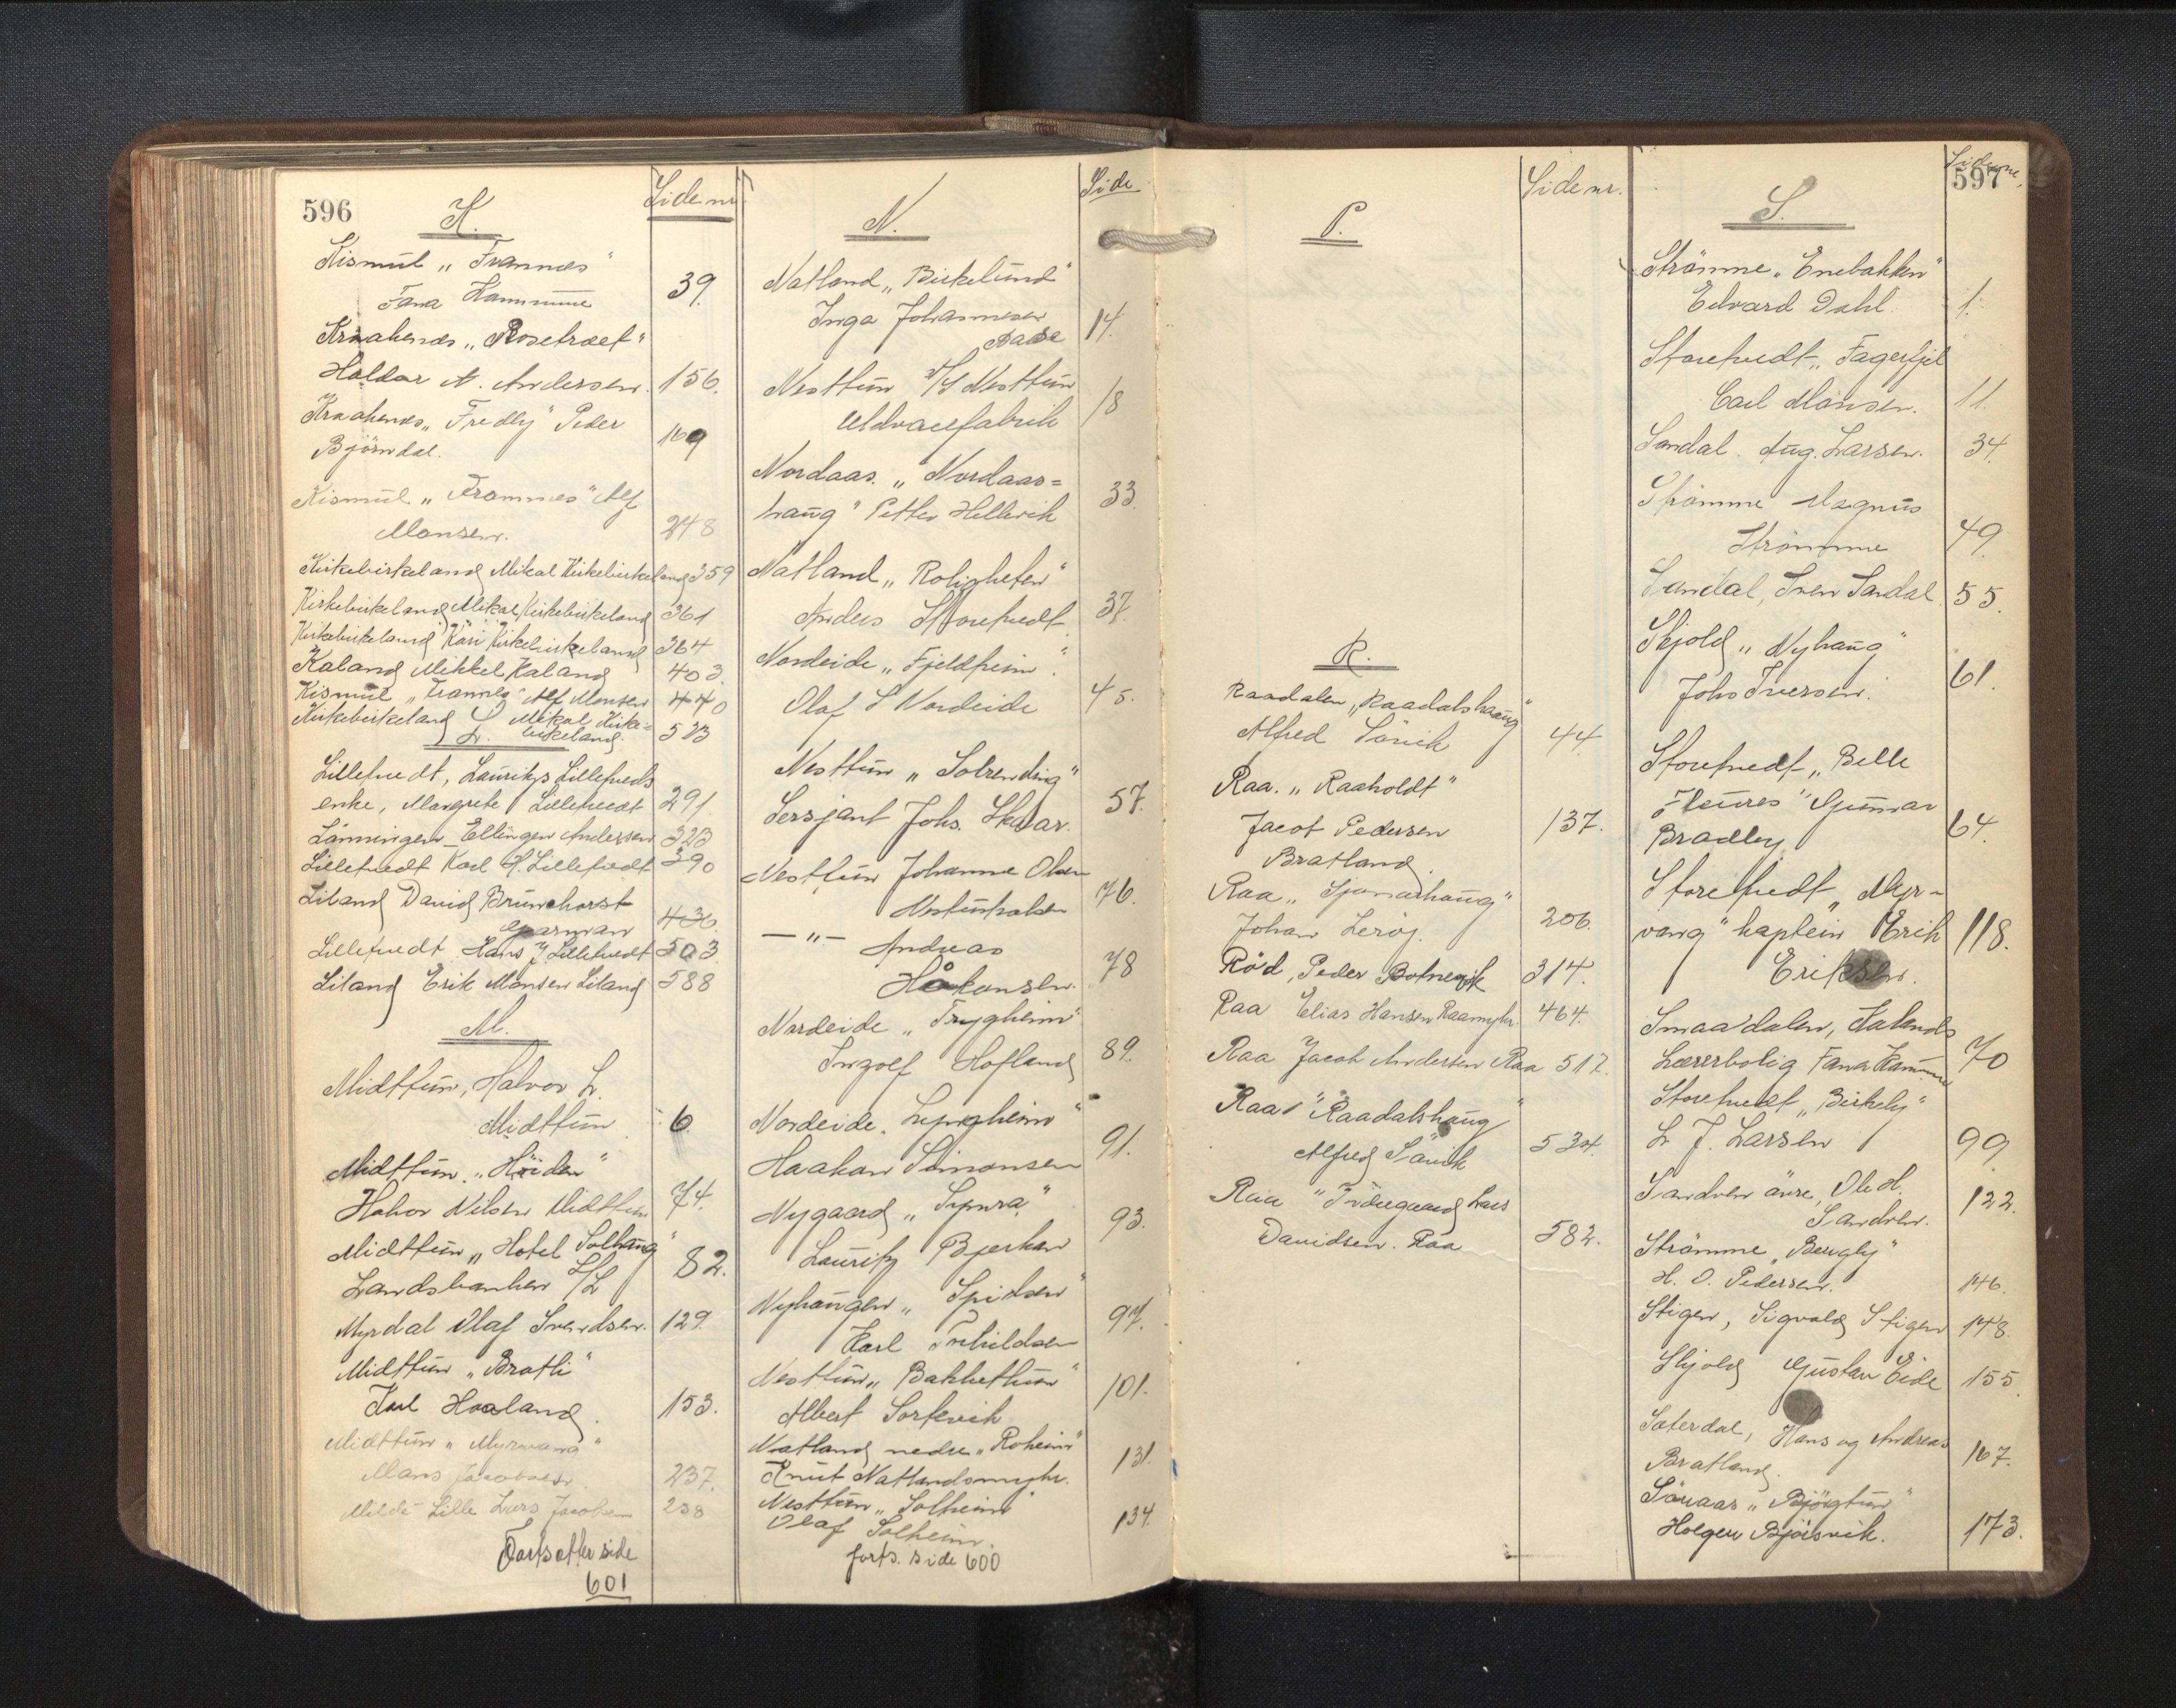 596
K.
Side nr.
Kismul „Framnes"
Fana Kommune
39.
Kraahenes „Rosetræt"
Haldor A. Andersen. 156.
Kraahenes „Fredly" Peder
Björndal. 169
Kismul „Framnes" Alf
Monsen. 248
Kirkebirkeland Mikal Kirkebirkeland 359
Kirkebirkeland Mikal Kirkebirkeland 361
Kirkebirkeland Kari Kirkebirkeland 364
Kaland Mikkel Kaland 403.
Kismul „Framnes" Alf Monsen 440
Kirkebirkeland Mikal Kirke=
birkeland. 523
L.
Lillehvedt, Lauritzs Lilletveds
enke, Margrete Lilletvedt 291
Lönningen Ellingen Andersen 323
Lilletvedt Karl H. Lilletvedt 390
Liland David Brunchorst
Garman 430.
Lilletvedt Hans J Lilletvedt 503.
Liland Erik Monsen Liland 588
M.
Midttun, Halvor L.
Midttun 6.
Midttun „Höiden"
Halvor Nilsen Midttun 74.
Midttun „Hotel Solhaug"
Landsbanken A/L 82.
Myrdal Olaf Svendsen. 129.
Midttun „Bratli"
Karl Haaland. 153.
Midttun „Myrvang"
Mons Jacobsen. 237.
Milde Lille Lars Jacobsen 238
Fortsetter side
601
N.
Side
Natland „Birkelund"
Inga Johannesen
Baase 14.
Nesttun A/S Nesttun
Uldvarefabrik 18
Nordaas. „Nordaas=
haug" Petter Hellevik 33.
Natland „Roligheten"
Anders Storetvedt 37.
Nordeide „Fjeldheim".
Olaf S Nordeide 45.
Nesttun „Solvending"
Sersjant Johs. Skaar. 57.
Nesttun Johanne Olsen
76.
— „ — Andreas
Håkonsen. 78
Nordeide „Trygheim"
Ingolf Hofland 89.
Nordeide. Lyngheim"
Haakon Simonsen 91.
Nygaard „Synra"
Lauritz Bjerkan 93.
Nyhaugen „
Karl 97.
Nesttun „Bakketun"
Albert Sortevik 101.
Natland nedre „Roheim"
Knut Natlandsmyhr. 131.
Nesttun „Solheim"
Olaf Solheim. 134.
forts. side 600
P.
Side nr.
R.
Raadalen „Raadalshaug"
Alfred Sörvik 44.
Raa. „Raaholdt"
Jacob Pedersen
Bratland. 137.
Raa „Sjonarhaug"
Johan Leröy. 206.
Röd, Peder Botnevik 314.
Raa Elias Hansen Raamyhr. 464.
Raa Jacob Andersen Raa 517.
Raa „Raadalshaug"
Alfred Sörvik 534.
Raa Lars
Davidsen. Raa 582.
Side nr.
597
S.
Strömme „Enebakken"
Edvard Dahl. 1.
Storetvedt „Fagerfjel
Carl Monsen. 11.
Sandal Aug. Larsen. 34.
Strömme Magnus
Strömme 49.
Sandal, Sven Sandal. 55.
Skjold „Nyhaug"
Johs Iversen. 61.
Storetvedt „Belle
Fleures" Gunnar
Bradley 64.
Storetvedt „Myr-
vang" kaptein Erik
Eriksen. 118.
Smaadalen, Kalands
Lærerbolig Fana Kommune 70
Storetvedt „Birkely"
L. J. Larsen 99.
Sandven övre, Ole
Sandven. 122.
Strömme „Bergly"
H. O. Pedersen. 146.
Stigen, Sigvald Stigen 148.
Skjold Gustav Eide 155.
Sæterdal, Hans og Andreas
Bratland. 167.
Söraas „Björgtun"
Holger Björsvik. 173.